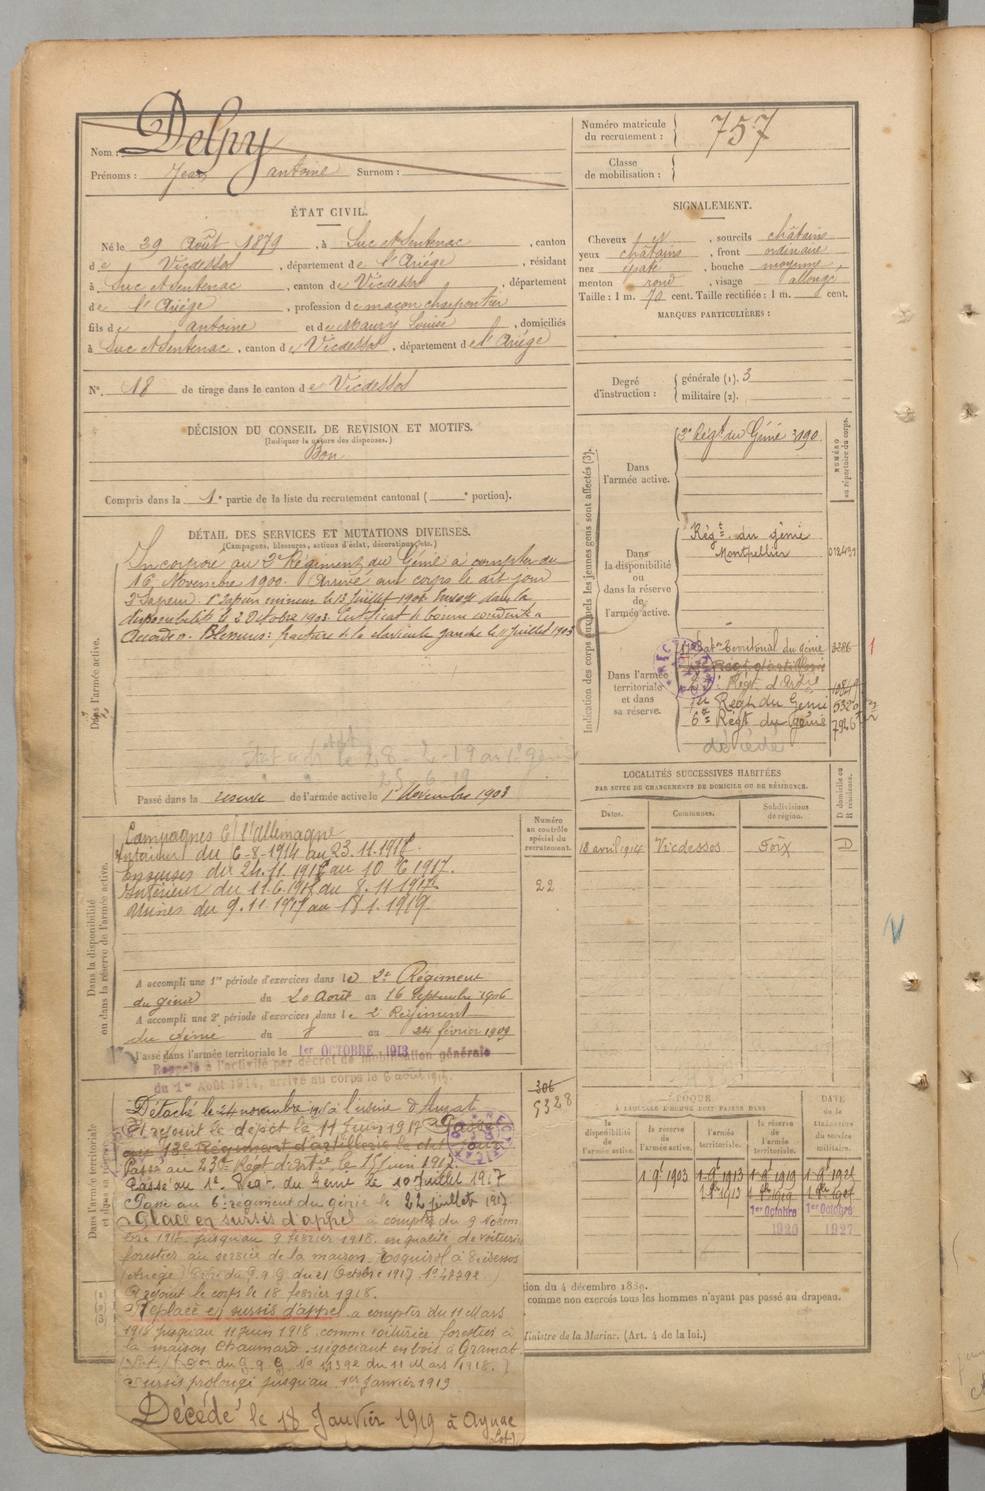 Nom : Delpy
Prénoms : Jean antoine Surnom :
ÉTAT CIVIL.
Né le 29 Août 1879, à Suc et Sentenac, canton
de Vicdessos, département de l'Ariége, résidant
à Suc et Sentenac, canton de Vicdessos, département
de l'Ariége, profession de maçon charpentier
fils de antoine et de Maury Louise, domiciliés
à Suc et Sentenac, canton de Vicdessos, département de l'Ariége
N° 18 de tirage dans le canton de Vicdessos
DÉCISION DU CONSEIL DE REVISION ET MOTIFS.
(Indiquer la nature des dispenses.)
Bon
Compris dans la 1e partie de la liste du recrutement cantonal ( e portion).
DÉTAIL DES SERVICES ET MUTATIONS DIVERSES.
(Campagnes, blessures, actions d'éclat, décorations, etc.)
Dans l'armée active.
Incorporé au 2e Régiment du Génie à compter du
16 Novembre 1900. Arrivé au corps le dit jour
2e Sapeur. 1er Sapeur mineur le 13 Juillet 1902. Envoyé dans la
disponibilité le 2 Octobre 1903. Certificat de bonne conduite
Accordé. Blessures: fracture de la clavicule gauche le Juillet 1903
le 28-2-19 au génie
25-6-19
Passé dans la reserve de l'armée active le 1er Novembre 1903
Dans la disponibilité ou dans la réserve de l'armée active.
Campagnes C/ l'Allemagne
Intérieur du 6-8-1914 au 23.11.191
du 24.11.191 au 10 6 1917.
Intérieur du 11.6.1917 du 8.11.1917
Usines du 9.11.1917 au 18 1. 1919
A accompli une 1re période d'exercices dans le 2e Régiment
du génie du 20 Août au 16 Septembre 1906
A accompli une 2e période d'exercices dans le 2 Régiment
du Génie du 8 au 24 février 1909
Passé dans l'armée territoriale le 1er OCTOBRE 1913
Rappelé à l'activité par décret de mobilisation générale
du 1er Août 1914, arrivé au corps le 6 août 1914.
Dans l'armée territoriale et dans sa réserve.
Détaché le 24 novembre 191 à l'usine d'Auzat
et rejoint le dépôt le 11 Juin 1917 Passé
au 18e Régiment d'artillerie le dit jour
Passé au 23e Régt d'artie le 15 Juin 1917.
Passé au 1er Régt du Génie le 10 Juillet 1917
Passé au 6e regiment du génie le 22 juillet 1917
Placé en sursis d'appel à compter du 9 Novem
bre 1917 jusqu'au 9 février 1918, en qualité de voiturier
forestier au service de la maison
(Ariège) du G.q.G. du 21 Octobre 1917 N° 48292.)
Rejoint le corps le 18 février 1918.
Replacé en sursis d'appel a compter du 11 Mars
1918 jusqu'au 11 juin 1918 comme voiturier forestier à
la maison Chaumard négociant en bois à Gramat
(Lot.) (Don du G.q.G. N° 11392 du 11 Mars 1918.)
Sursis prolongé jusqu'au 1er Janvier 1919
Décédé le 18 Janvier 1919 à Aynac
(Lot)
Numéro au contrôle spécial du recrutement.
22
306
5328
Numéro matricule du recrutement : 757
Classe de mobilisation :
SIGNALEMENT.
Cheveux et, sourcils châtains
yeux châtains, front ordinaire
nez épaté, bouche moyenne,
menton rond, visage allongé
Taille : 1 m. 70 cent. Taille rectifiée : 1 m. cent.
MARQUES PARTICULIÈRES :
Degré d'instruction : générale (1). 3
militaire (2).
Indication des corps auxquels les jeunes gens sont affectés (3).
NUMÉRO au répertoire du corps.
Dans l'armée active.
2e Régt du Génie 3190.
Dans la disponibilité ou dans la réserve de l'armée active.
Régt du génie
Montpellier
Dans l'armée territoriale et dans sa réserve.
17 Batn territorial du génie 3286 1
18e Régt d'artillerie
Régt d'Artie
1er Régt du Genie 5320
6e Régt du Génie 7926
décédé
LOCALITÉS SUCCESSIVES HABITÉES
PAR SUITE DE CHANGEMENTS DE DOMICILE OU DE RÉSIDENCE.
Dates. Communes. Subdivisions de région. D domicile ou R résidence.
18 avril 1914 Vicdessos Foix D
ÉPOQUE
À LAQUELLE L'HOMME DOIT PASSER DANS
la disponibilité de l'armée active. la réserve de l'armée active. l'armée territoriale. la réserve de l'armée territoriale. DATE de la libération du service militaire.
1 9e 1903 1 9e 1913 1 9e 1919 1 9e 1925
1er Octobre 1920 1er Octobre 1927
tion du 4 décembre 1889.
comme non exercés tous les hommes n'ayant pas passé au drapeau.
Ministre de la Marine. (Art. 4 de la loi.)